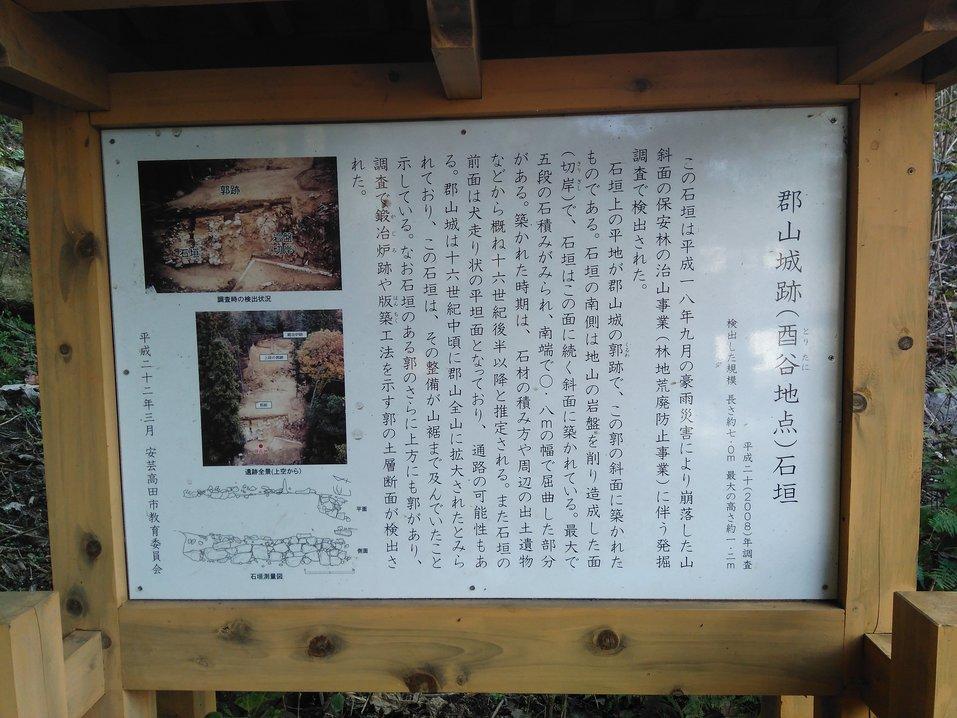 郡山城跡（酉谷地点）石垣
とりたに
平成二十（2008）年調査
検出した規模　長さ約七・〇m　最大の高さ約一・二m
この石垣は平成一八年九月の豪雨災害により崩落した山
斜面の保安林の治山事業（林地荒廃防止事業）に伴う発掘
調査で検出された。
石垣上の平地が郡山城の郭跡で、この郭の斜面に築かれた
ものである。石垣の南側は地山の岩盤を削り造成した面
（切岸）で、石垣はこの面に続く斜面に築かれている。最大で
五段の石積みがみられ、南端で〇・八mの幅で屈曲した部分
がある。築かれた時期は、石材の積み方や周辺の出土遺物
などから概ね十六世紀後半以降と推定される。また石垣の
前面は犬走り状の平坦面となっており、通路の可能性もあ
る。郡山城は十六世紀中頃に郡山全山に拡大されたとみら
れており、この石垣は、その整備が山裾まで及んでいたこと
示している。なお石垣のある郭のさらに上方にも郭があり、
調査で鍛冶炉跡や版築工法を示す郭の土層断面が検出さ
れた。
郭跡
石垣
調査時の検出状況
遺跡全景（上空から）
平面
側面
石垣測量図
平成二十二年三月　安芸高田市教育委員会